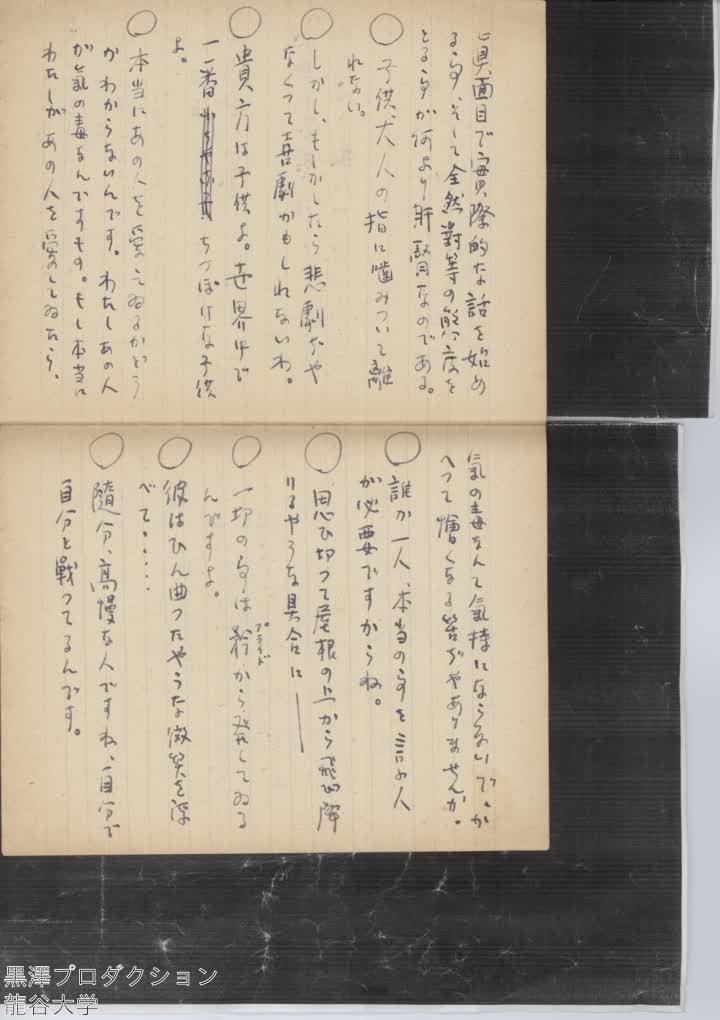 真面目で實際的な話を始め
る事、そして全然對等の態度を
とる事が何より肝腎なのである。
○ 子供、大人の指に噛みついて離
れない。
○ しかし、もしかしたら悲劇ぢや
なくつて喜劇かもしれないわ。
○ 貴方は子供よ。世界中で
一番 ちつぽけな子供
よ。
○ 本当にあの人を愛してゐるかどう
かわからないんです。わたしあの人
が氣の毒なんですもの。もし本当に
わたしがあの人を愛してゐたら、
氣の毒なんて気持にならないで、か
へつて憎くなる筈ぢやありませんか。
○ 誰か一人、本当の事を言ふ人
が必要ですからね。
○ 思ひ切つて屋根の上から飛降
りるやうな具合に――
○ 一切の事は矜プライドから発してゐる
んですよ。
○ 彼はひん曲つたやうな微笑を浮
べて・・・・・
○ 隨分、高慢な人ですね、自分で
自分と戰つてるんです。
黒澤プロダクション
龍谷大学